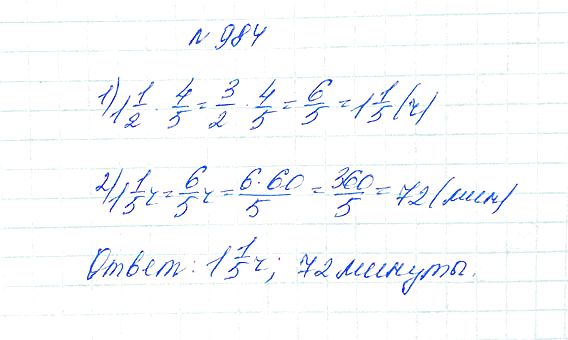 №984
1) 1 1/2 · 4/5 = 3/2 · 4/5 = 6/5 = 1 1/5 (ч)
2) 1 1/5 ч = 6/5 ч = 6·60/5 = 360/5 = 72 (мин)
Ответ: 1 1/5 ч; 72 минуты.